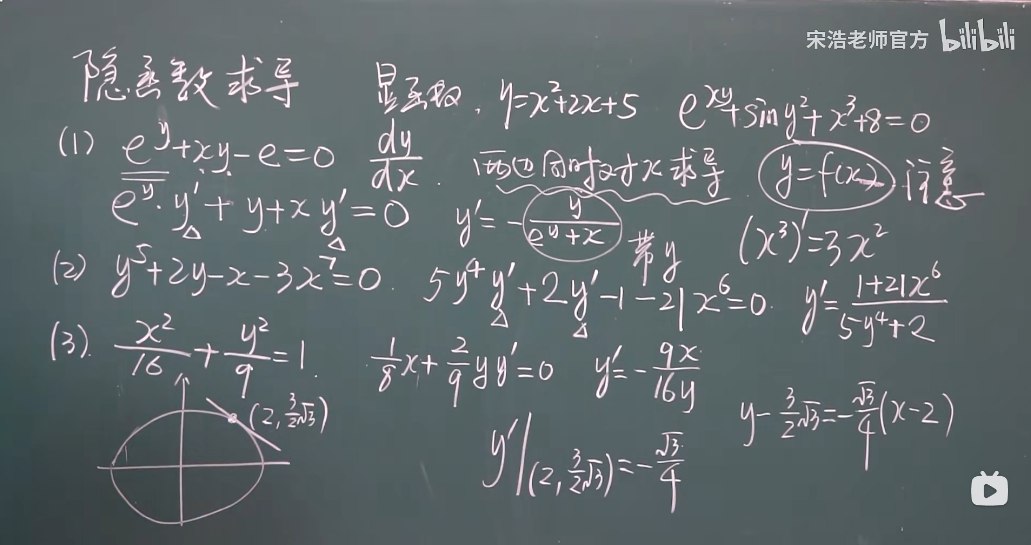 宋浩老师官方 bilibili
隐函数求导 显函数. y=x²+2x+5 e^{xy}+siny²+x³+8=0
(1) e^y+xy-e=0 dy/dx. 两边同时对x求导 y=f(x) 注意
e^y·y'+y+xy'=0 y'=-y/(e^y+x) 带y (x³)'=3x²
(2) y⁵+2y-x-3x⁷=0. 5y⁴y'+2y'-1-21x⁶=0. y'=(1+21x⁶)/(5y⁴+2)
(3). x²/16+y²/9=1. 1/8x+2/9yy'=0 y'=-9x/16y
(2,3/2√3) y-3/2√3=-√3/4(x-2)
y'|(2,3/2√3)=-√3/4